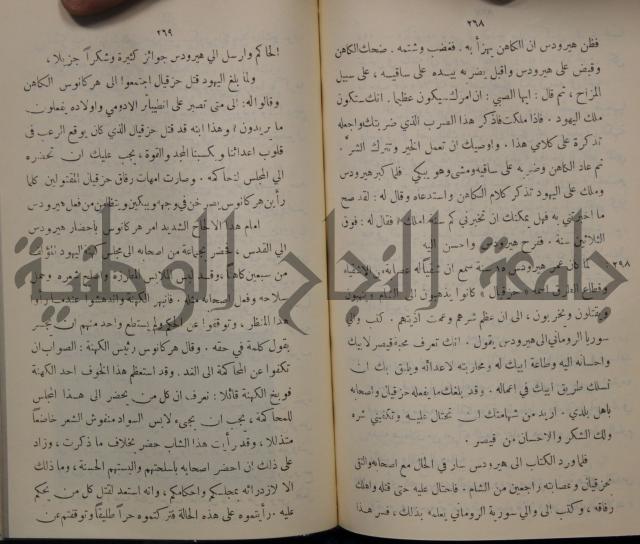 ٢٦٨
فظن هيرودس ان الكاهن يهزأ به . فغضب وشتمه . ضحك الكاهن
وقبض على هيرودس واقبل يضربه بيده على ساقيه ، على سبيل
المزاح ، ثم قال : ايها الصبي : ان امرك سيكون عظيما . انك ستكون
ملك اليهود . فاذا ملكت فاذكر هذا الضرب الذي ضربتك واجعله
تذكرة على كلامي هذا . واوصيك ان تعمل الخير وتترك الشر .
ثم عاد الكاهن وضربه على ساقيه ومشى وهو يبكي . فلما كبر هيرودس
وملك على اليهود تذكر كلام الكاهن واستدعاه وقال له : لقد صح
ما اخبرتني به فهل يمكنك ان تخبرني كم سنة املك ؟ فقال له : فوق
الثلاثين سنة . ففرح هيرودس واحسن اليه
٣٩٨ ما كان عمر هيرودس ١٥ سنة سمع ان
وقطاع الطرق حزقيال كانوا يذهبون الى الشام وينهبون
ويقتلون ويخربون ، الى ان عظم شرهم وعمت اذيتهم . كتب والي
سوريا الروماني الى هيرودس يقول . انك تعرف محبة قيصر لابيك
واحسانه اليه وطاعة ابيك له ومحاربته لاعدائه ويليق بك ان
تسلك طريق ابيك في اعماله . وقد بلغك ما يفعله حزقيال واصحابه
باهل بلدي . اريد من شهامتك ان تحتال عليه وتكفيني شره
ولك الشكر والاحسان من قيصر .
فلما ورد الكتاب الى هيرودس سار في الحال مع اصحابه والتقى
بحزقيال وعصابته راجعين من الشام . فاحتال عليه حتى قتله واهلك
رفاقه ، وكتب الى والي سورية الروماني يعلمه بذلك ، فسر هذا
٢٦٩
الحاكم وارسل الى هيرودس جوائز كثيرة وشكراً جزيلا ،
ولما بلغ اليهود قتل حزقيال اجتمعوا الى هركانوس الكاهن
وقالوا له : الى متى تصبر على انطيباتر الادومي واولاده يفعلون
ما يريدون ؟ وهذا ابنه قد قتل حزقيال الذي كان يوقع الرعب في
قلوب اعدائنا ويكسبنا المجد والقوة ، يجب عليك ان تحضره
الى المجلس لنحاكمه . وصارت امهات رفاق حزقيال المقتولين كلما
رأين هركانوس يصرخن في وجهه ويبكين ويتظلمن من فعل هيرودس
امام هذا الالحاح الشديد امر هركانوس باحضار هيرودس
الى القدس ، فحضر بجماعة من اصحابه الى مجلس اليهود المؤلف
من سبعين كاهناً ، وقد لبس الملابس الفاخرة واصلح شعره وحمل
سلاحه وفعل اصحابه مثله . فانبهر الكهنة واندهشوا عندما رأوا
هذا المنظر ، وتوقفوا عن الحكم ولم يستطع واحد منهم ان يجسر
يقول كلمة في حقه . وقال هركانوس رئيس الكهنة : الصواب ان
تكفوا عن المحاكمة الى الغد . وقد استعظم هذا الخوف احد الكهنة
فوبخ الكهنة قائلا : نعرف ان كل من يحضر الى هذا المجلس
للمحاكمة ، يجب ان يجيء لابس السواد منفوش الشعر خاضعاً
متذللا ، وقد رأيت هذا الشاب حضر بخلاف ما ذكرت ، وزاد
على ذلك ان احضر اصحابه باسلحتهم والبستهم الحسنة ، وما ذلك
الا لازدرائه بمجلسكم واحكامكم ، وانه استعد لقتل كل من يحكم
عليه . رأيتموه على هذه الحالة فتركتموه حراً طليقاً وتوقفتم عن
جامعة النجاح الوطنية